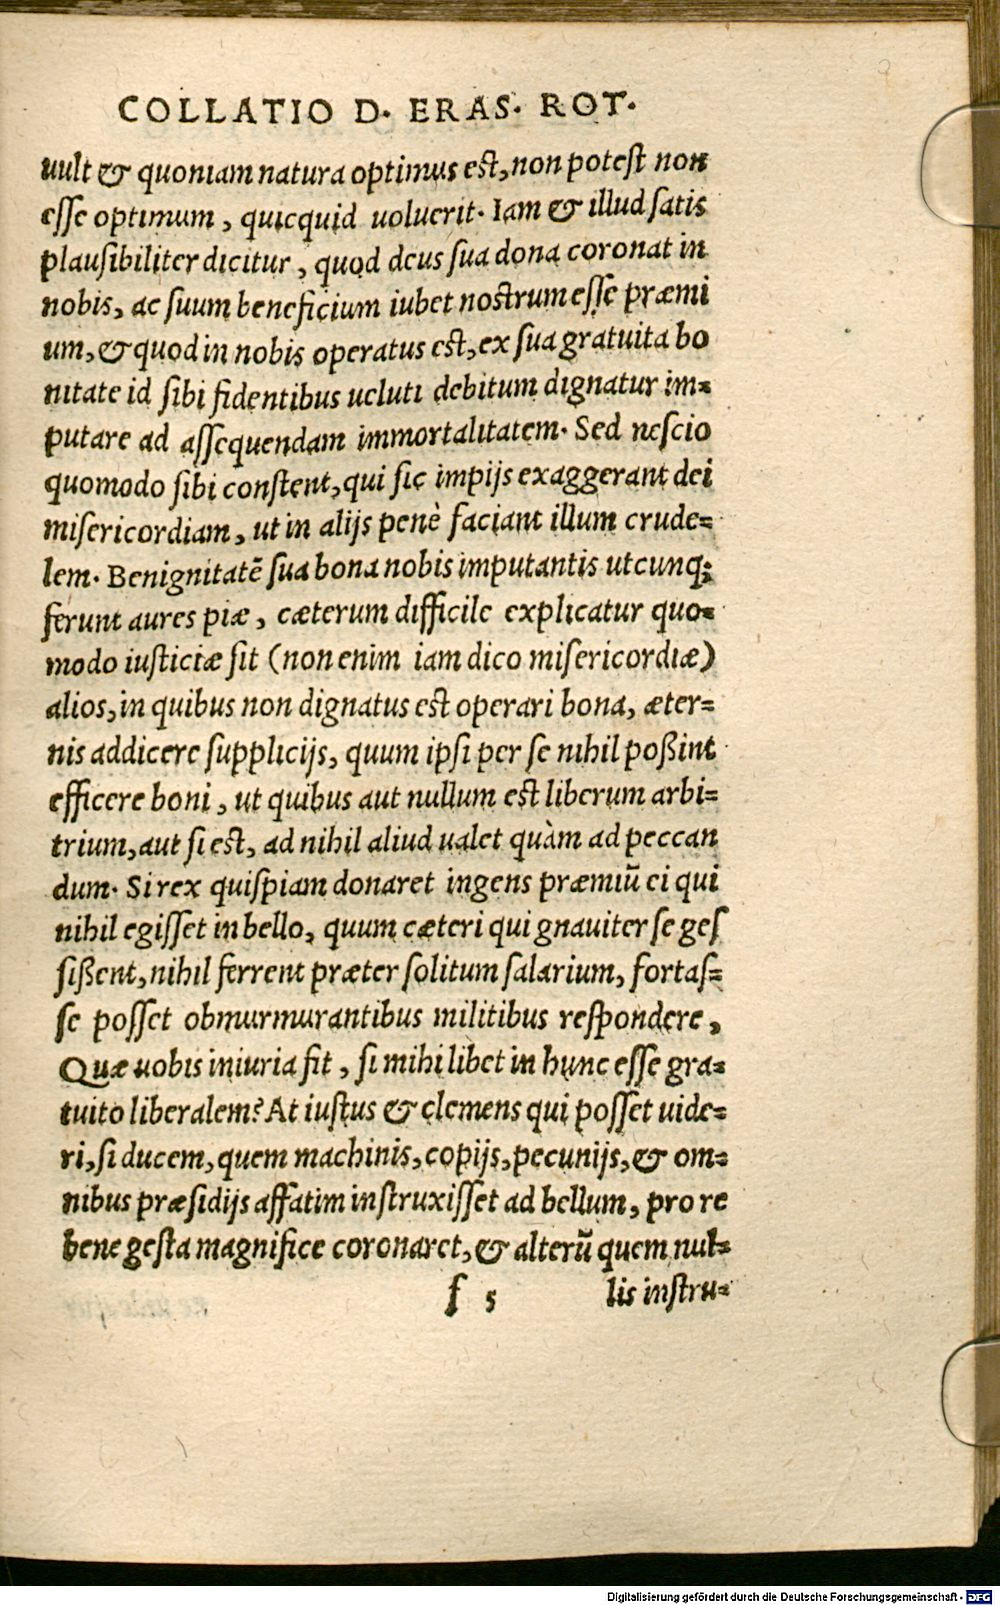 COLLATIO D. ERAS. ROT.
uult & quoniam natura optimus est, non potest non
esse optimum, quicquid uoluerit. Iam & illud satis
plausibiliter dicitur, quod deus sua dona coronat in
nobis, ac suum beneficium iubet nostrum esse præmi
um, & quod in nobis operatus est, ex sua gratuita bo
nitate id sibi fidentibus ueluti debitum dignatur im=
putare ad assequendam immortalitatem. Sed nescio
quomodo sibi constent, qui sic impijs exaggerant dei
misericordiam, ut in alijs penè faciant illum crude=
lem. Benignitatē sua bona nobis imputantis utcunq;
ferunt aures piæ, cæterum difficile explicatur quo=
modo iusticiæ sit (non enim iam dico misericordiæ)
alios, in quibus non dignatus est operari bona, æter=
nis addicere supplicijs, quum ipsi per se nihil poßint
efficere boni, ut quibus aut nullum est liberum arbi=
trium, aut si est, ad nihil aliud ualet quàm ad peccan
dum. Si rex quispiam donaret ingens præmiū ei qui
nihil egisset in bello, quum cæteri qui gnauiter se ges
sißent, nihil ferrent præter solitum salarium, fortas=
se posset obmurmurantibus militibus respondere,
Quæ uobis iniuria fit, si mihi libet in hunc esse gra=
tuito liberalem? At iustus & clemens qui posset uide=
ri, si ducem, quem machinis, copijs, pecunijs, & om=
nibus præsidijs affatim instruxisset ad bellum, pro re
bene gesta magnifice coronaret, & alterū quem nul=
f 5 lis instru=
Digitalisierung gefördert durch die Deutsche Forschungsgemeinschaft - DFG